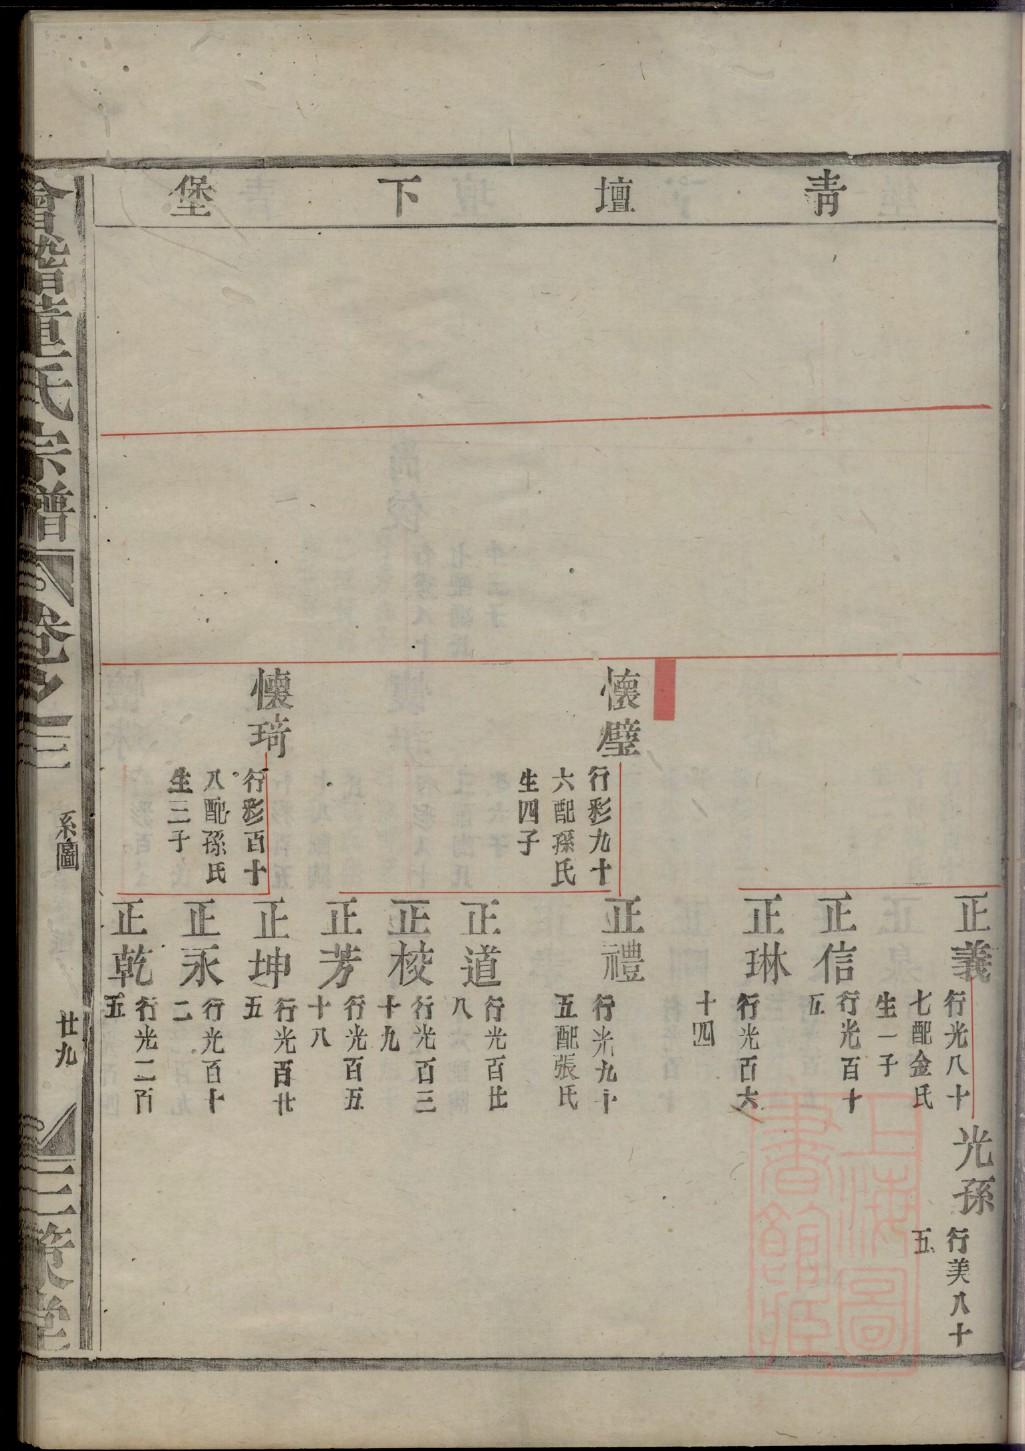 青壇下堡
懷璧
行彩九十
六配孫氏
生四子
懷琦
行彩百十
八配孫氏
生三子
正義
行光八十
七配金氏
生一子
正信
行光百十
五
正琳
行光百六
十四
正禮
行光九十
五配張氏
正道
行光百廿
八
正校
行光百三
十九
正芳
行光百五
十八
正坤
行光百廿
五
正永
行光百十
二
正乾
行光二百
五
光孫
行美八十
五
會稽董氏宗譜
卷之三
系圖
廿九
三策堂
上海圖書館藏